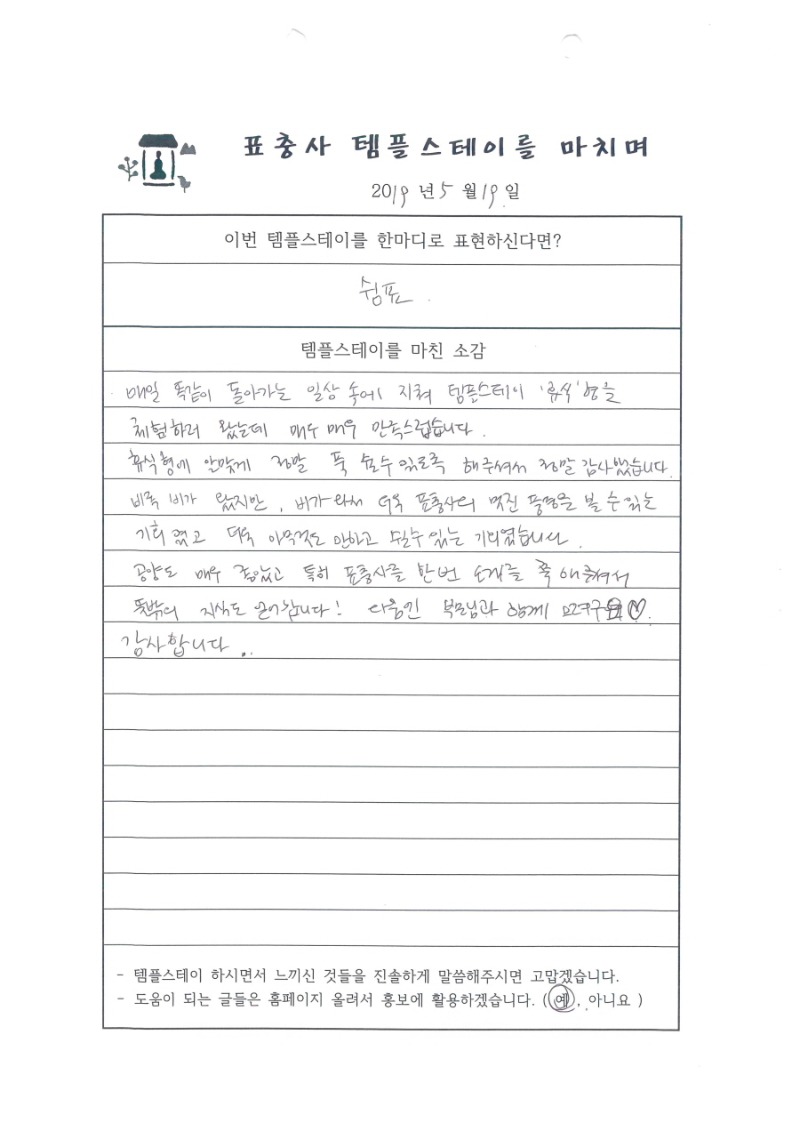 표충사 템플스테이를 마치며
2019 년 5 월 19 일
이번 템플스테이를 한마디로 표현하신다면?
쉼표.
템플스테이를 마친 소감
매일 똑같이 돌아가는 일상 속에 지쳐 템플스테이 '휴식'형을
체험하러 왔는데 매우 매우 만족스럽습니다.
휴식형에 알맞게 정말 푹 쉴수 있도록 해주셔서 정말 감사했습니다.
비록 비가 왔지만, 비가와서 더욱 표충사의 멋진 풍경을 볼 수 있는
기회 였고 더욱 아무것도 안하고 쉴수 있는 기회였습니다.
공양도 매우 좋았고 특히 표충사를 한번 소개를 쭉 해주셔서
뜻밖의 지식도 얻어갑니다! 다음엔 부모님과 함께
감사합니다..
- 템플스테이 하시면서 느끼신 것들을 진솔하게 말씀해주시면 고맙겠습니다.
- 도움이 되는 글들은 홈페이지 올려서 홍보에 활용하겠습니다. ( 예 , 아니요 )